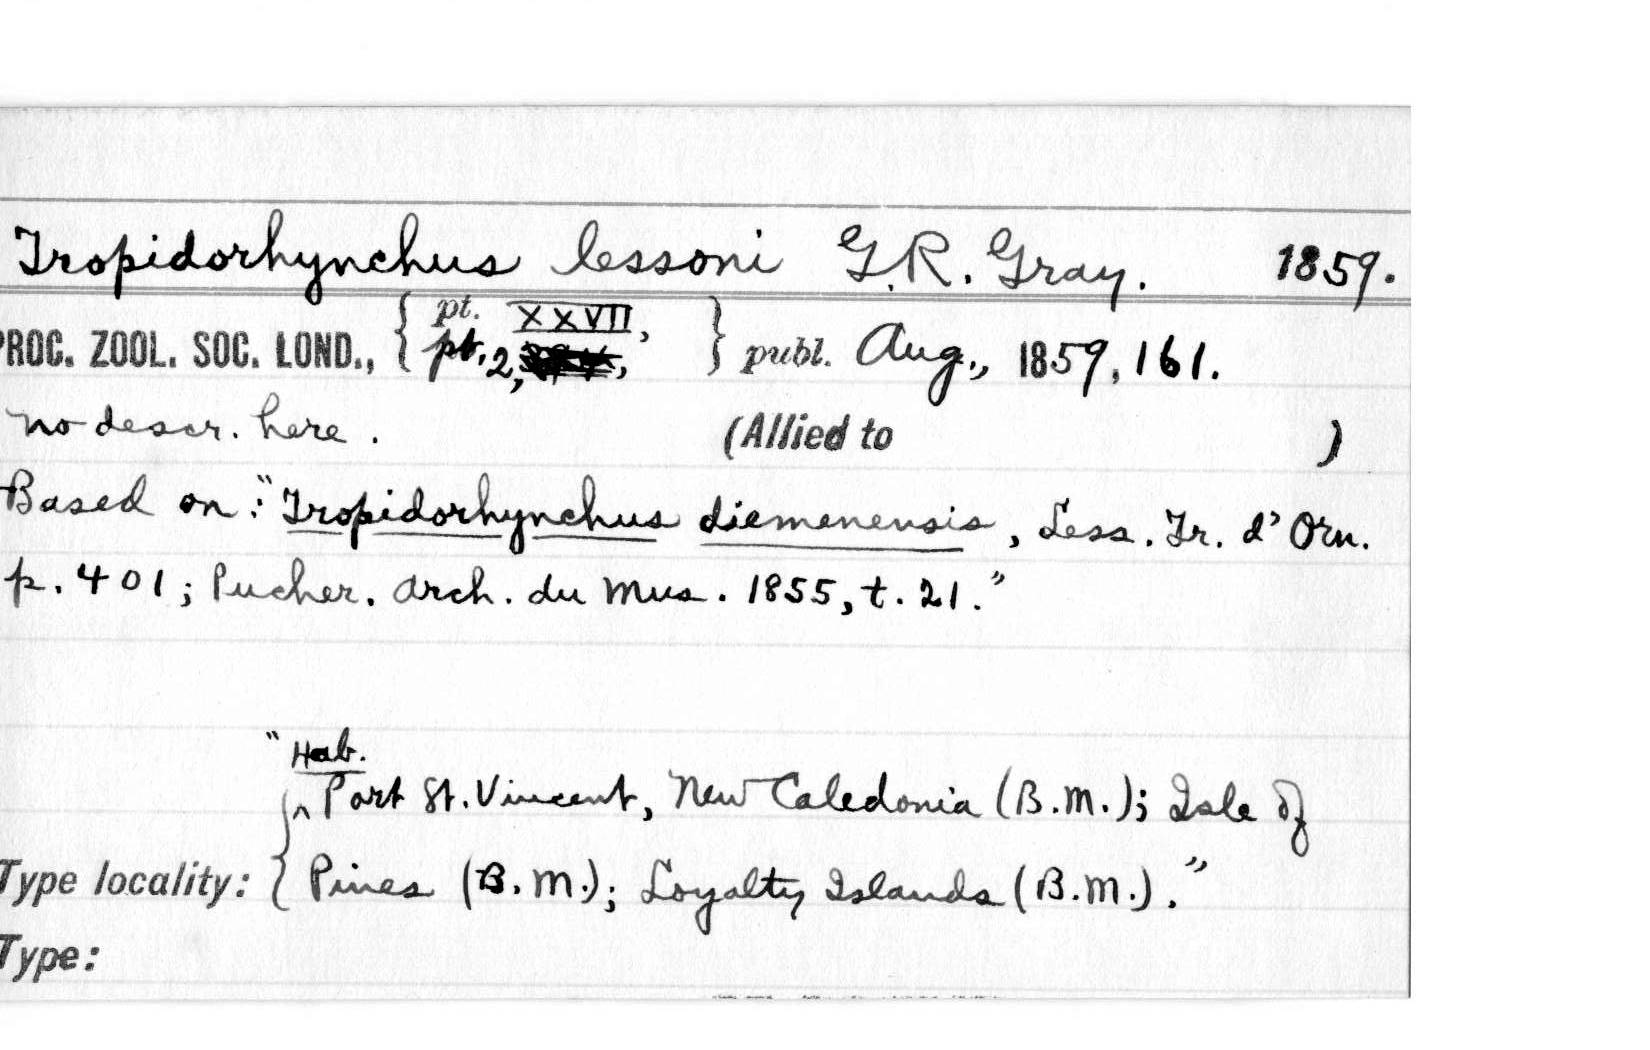 Tropidorhynchus lessoni G.R. Gray. 1859.
PROC. ZOOL. SOC. LOND., { pt. XXVII, } publ. Aug., 1859, 161.
pt. 2,
no descr. here. (Allied to )
Based on: "Tropidorhynchus diemenensis, Less. Tr. d' Orn.
p. 401; Pucher. Arch. du Mus. 1855, t. 21."
"Hab.
Port St. Vincent, New Caledonia (B.M.); Isle of
Type locality: { Pines (B.M.); Loyalty Islands (B.M.)."
Type: